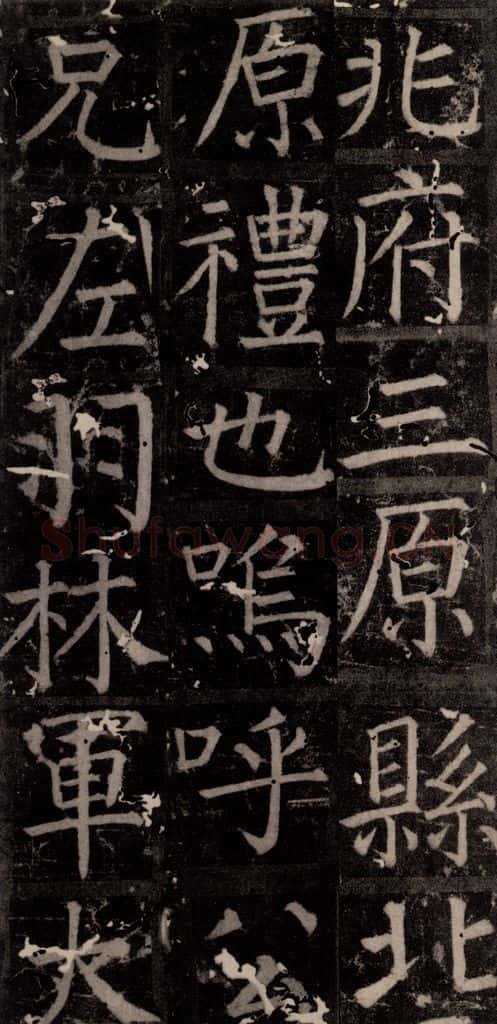 兆府三原縣北
原禮也嗚呼公
兄左羽林軍大
Shufawang.CN